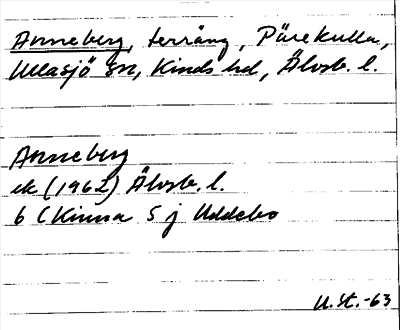 Anneberg, terräng, Pärekulla,
Ullasjö sn, Kinds hd, Älvsb. l.
Anneberg
ek (1962) Älvsb. l.
6 C Kinna 5 j Uddebo
U.St.-63